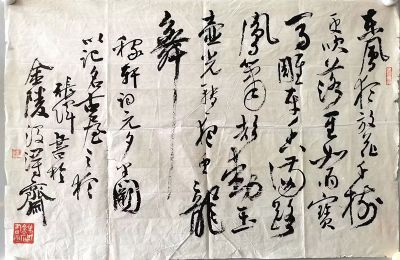 東風夜放花千樹
更吹落星如雨寶
馬雕車香滿路
鳳簫聲動玉
壺光轉一夜魚龍
舞
稼軒詞元夕半闋
以記名古屋之
書於
金陵齋